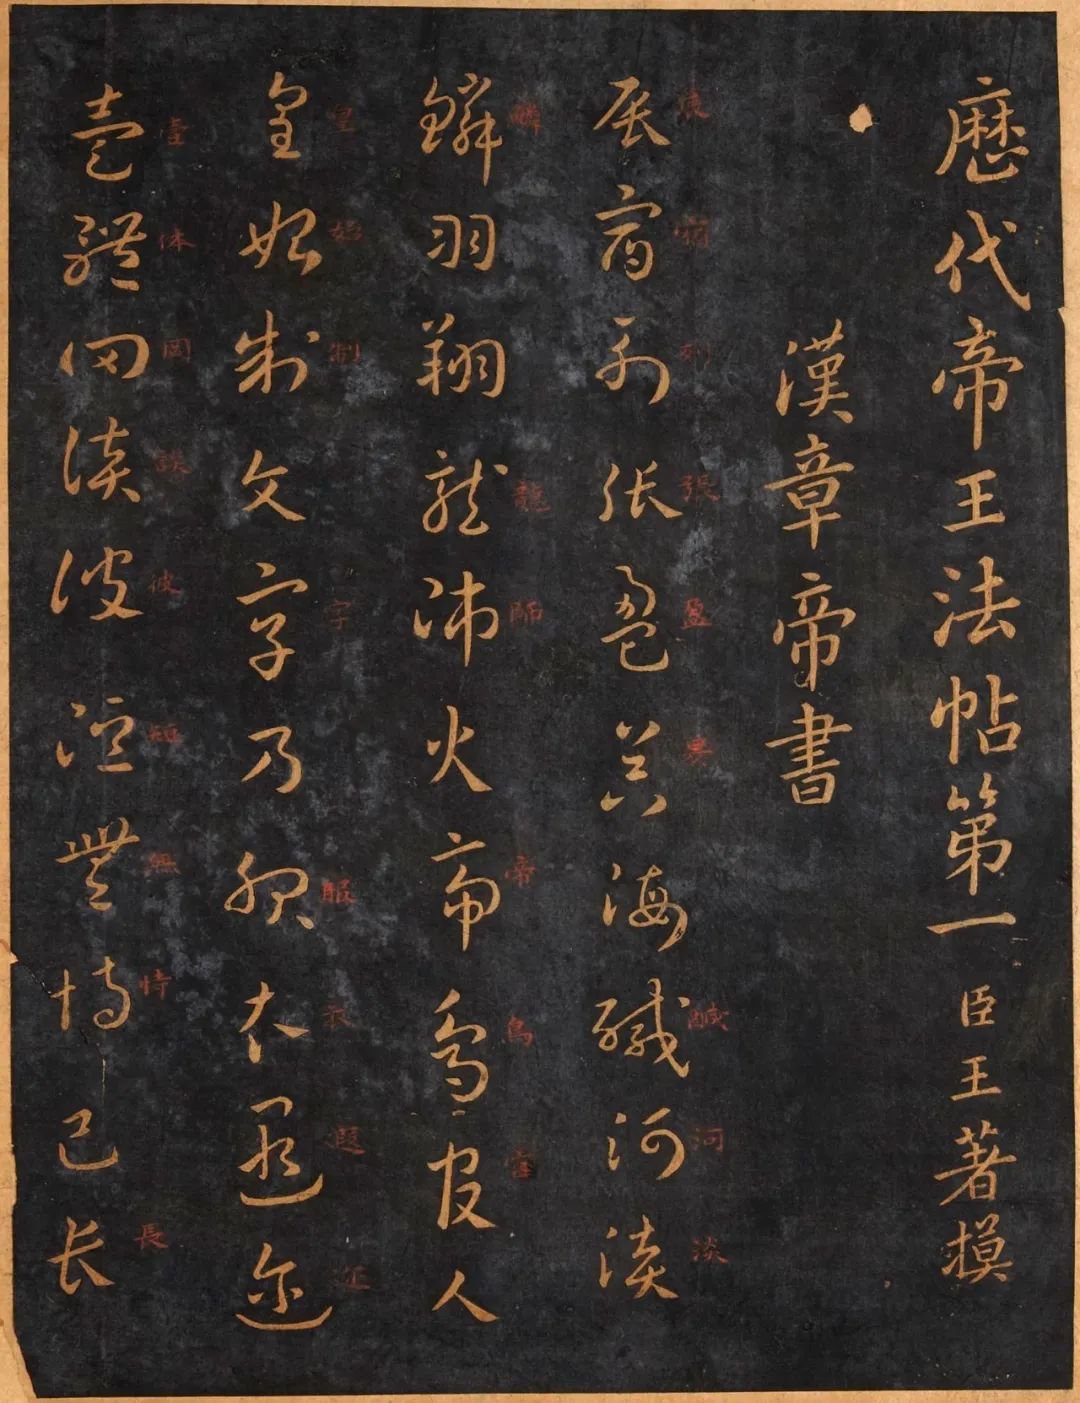 歷代帝王法帖第一臣王著摸
漢章帝書
辰宿列張盈昃海鹹河淡
鱗羽翔龍師火帝鳥官人
皇始制文字乃服衣遐迩
壹體罔談彼短無恃己長